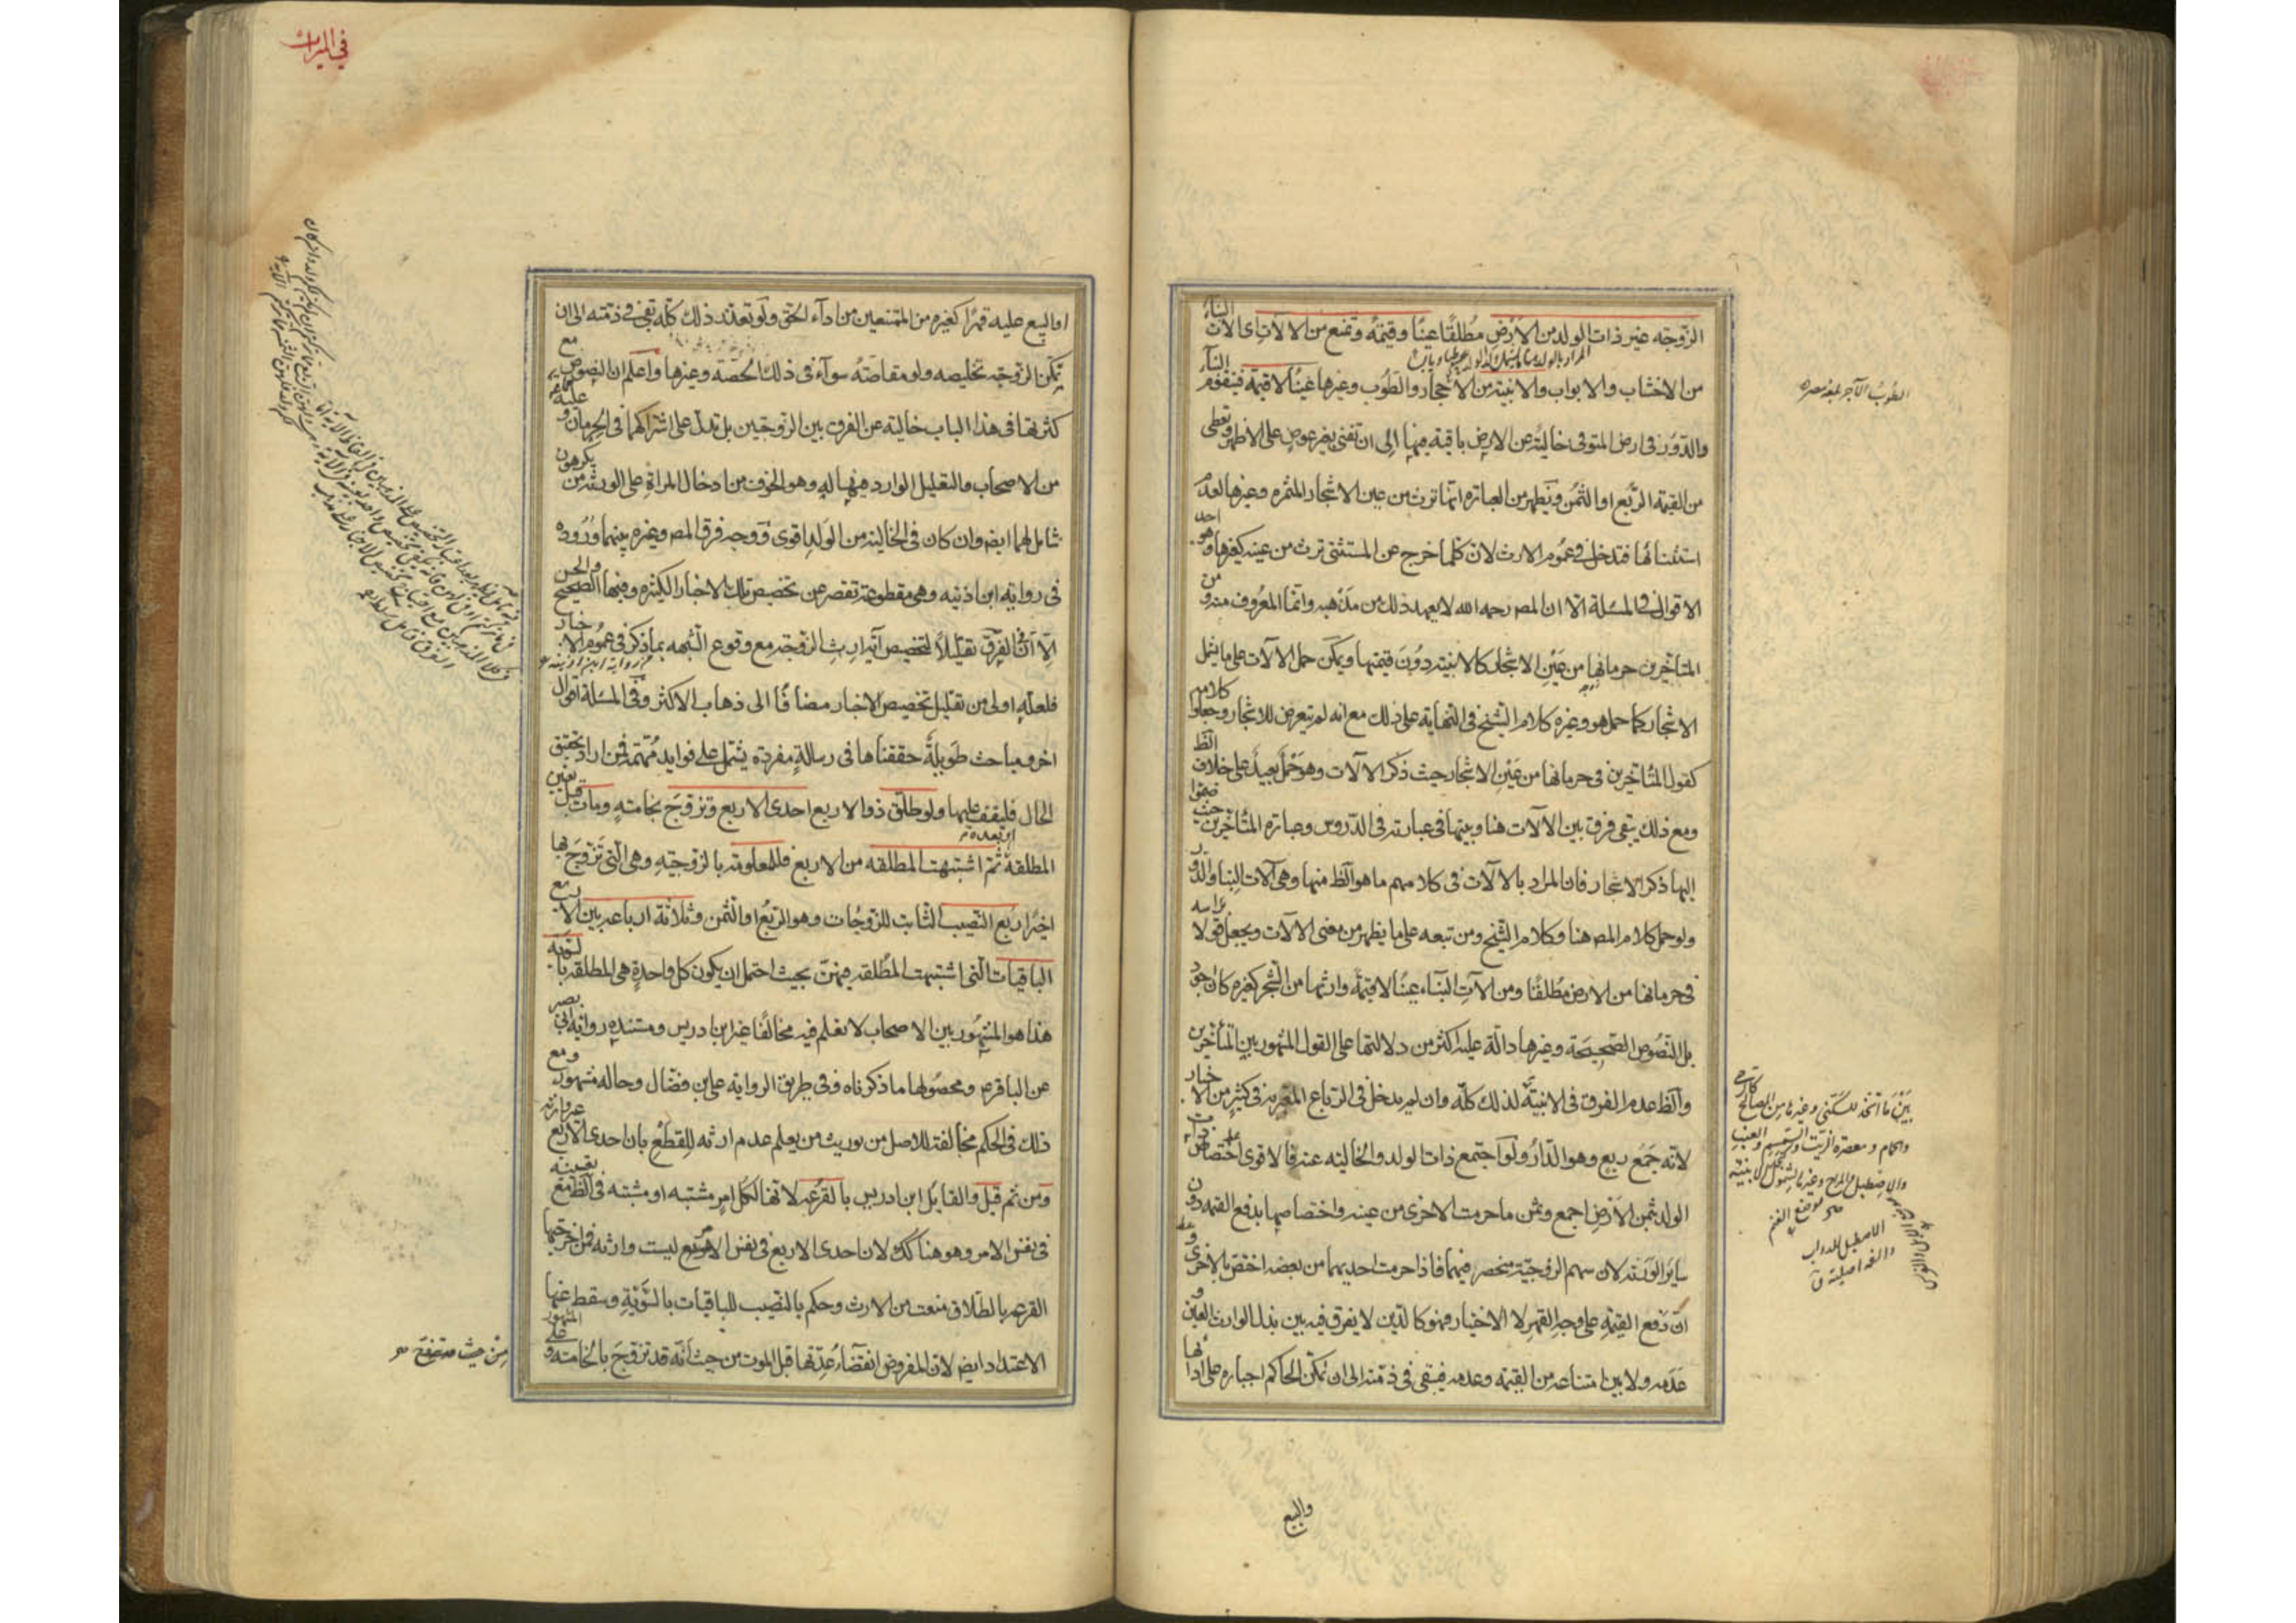 الزوجة غير ذات الولد من الأرض مطلقًا عينًا وقيمة وتمنع من الالات اى الات البناء
المراد بالولد هنا
من الاخشاب والابواب والابنية من الاحجار والطوب وغيرها عينًا لا قيمة فيقوم البناء
والدور فى ارض المتوفى خالية عن الارض باقية فيها الى ان تفنى بغير عوض على الاظهر وتعطى
من القيمة الربع او الثمن ويظهر من العبارة انها ترث من عين الاشجار المثمرة وغيرها لعدم
استثنائها فتدخل فى عموم الارث لان كلما خرج عن المستثنى ترث من عينه كغيرها وهو احد
الاقوال فى المسئلة الا ان المصـ رحمه الله لا يعهد ذلك من مذهبه وانما المعروف منه ومن
المتأخرين حرمانها من عين الاشجار كالابنية دون قيمتها ويمكن حمل الآلات على ما يشمل
الاشجار كما حمل هو وغيره كلام الشيخ فى النهاية على ذلك مع انه لم يتعرض للاشجار وجعلوا كلامه
كقول المتأخرين فى حرمانها من عين الاشجار حيث ذكر الآلات وهو حمل بعيد على خلاف الظ
ومع ذلك يبقى فرق بين الآلات هنا وبينها فى عبارته فى الدروس وعبارة المتأخرين حيث ضموا
اليها ذكر الاشجار فان المراد بالآلات فى كلامهم ما هو الظ منها وهى آلات البنا والدور
ولو حمل كلام المصـ هنا وكلام الشيخ ومن تبعه على ما يظهر من معنى الآلات ويجعل قولا براسه
فى حرمانها من الارض مطلقًا ومن آلات البناء عينًا لا قيمة وارثها من الشجر كغيره كان اجود
بل النصوص الصحيحة وغيرها دالة عليه اكثر من دلالتها على القول المشهور بين المتأخرين
والظ عدم الفرق فى الابنية لذلك كله وان لم يدخل فى الرباع المعبر به فى كثير من الاخبار
لانه جمع ربع وهو الدار ولو اجتمع ذات الولد والخالية عنه فالاقوى اختصاص ذات
الولد بثمن الارض اجمع وثمن ما حرمت الاخرى من عينه واختصاصها بدفع القيمة دون
ساير الورثة لان سهم الزوجية منحصر فيهما فاذا حرمت احديهما من بعضه اختص بالاخرى و
ان دفع القيمة على وجه القهر لا الاختيار فهو كالدين لا يفرق فيه بين بذل الوارث العين و
عدمه ولا بين امتناعه من القيمة وعدمه فيبقى فى ذمته الى ان تمكن الحاكم اجباره على ادائها
والبيع
الطوب الآجر بلغة مصر
بين ما اتخذ للسكنى وغيره من المصالح
والحمام ومعصرة الزيت والسمسم والعنب
والاصطبل والمراح وغيرها لشمول الابنية
موضع الغنم
الاصطبل للدواب
فى الميراث
او البيع عليه قهرًا كغيره من الممتنعين من اداء الحق ولو تعذر ذلك كله بقى فى ذمته الى ان
تمكن الزوجة تخليصه ولو مقاصة سواء فى ذلك الحصة وغيرها واعلم ان النصوص مع
كثرتها فى هذا الباب خالية عن الفرق بين الزوجتين بل تدل على اشتراكهما فى الحرمان و عليه
من الاصحاب والتعليل الوارد فيها له وهو الخوف من ادخال المراة على الورثة من يكرهون
شامل لهما ايضـ وان كان فى الخالية من الولد اقوى ووجه فرق المصـ وغيره بينهما وروده
فى رواية ابن اذينة وهى مقطوعة تقصر عن تخصيص تلك الاخبار الكثيرة وفيها الصحيح والحسن
الا ان فى الفرق تقليلًا لتخصيص آية ارث الزوجة مع وقوع الشبهة بما ذكر فى عموم الاخبار
فلعله اولى من تقليل تخصيص الاخبار مضافًا الى ذهاب الاكثر وفى المسئلة اقوال
اخر ومباحث طويلة حققناها فى رسالة مفردة يشتمل على فوايد مهمة فمن اراد تحقيق
الحال فليقف عليها ولو طلق ذو الاربع احدى الاربع وتزوج بخامسة ومات قبل تعين
المطلقة ثم اشتبهت المطلقة من الاربع فللمعلومة بالزوجية وهى التى تزوج بها
اخيرًا ربع النصيب الثابت للزوجات وهو الربع او الثمن وثلاثة ارباعه بين الاربع
الباقيات التى اشتبهت المطلقة فيهن بحيث احتمل ان يكون كل واحدة هى المطلقة بالسوية
هذا هو المشهور بين الاصحاب لا نعلم فيه مخالفًا غير ابن ادريس ومستنده رواية ابى بصير
عن الباقر ع ومحصولها ما ذكرناه وفى طريق الرواية على بن فضال وحاله مشهور ومع
ذلك فى الحكم مخالفة للاصل من توريث من يعلم عدم ارثه للقطع بان احدى الاربع غير وارثة
ومن ثم قيل والقايل ابن ادريس بالقرعة لانها لكل امر مشتبه او مشتبه فى الظ مع تعينه
فى نفس الامر وهو هنا كك لان احدى الاربع فى نفس الامر ليست وارثة فمن اخرجتها
القرعة بالطلاق منعت من الارث وحكم بالنصيب للباقيات بالسوية وسقط عنها
الاعتداد ايضـ لان المفروض انقضاء عدتها قبل الموت من حيث انه قد تزوج بالخامسة و على المشهور